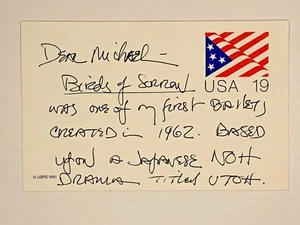 Dear Michael –
Birds of Sorrow
USA 19
was one of my first Ballets
created in 1962. Based
upon a Japanese NOH
Drama titled UTOH.
© USPS 1991